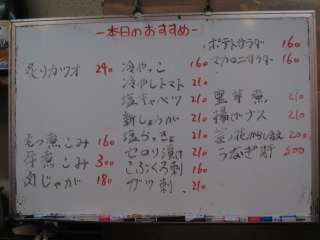 －本日のおすすめ－
炙りカツオ 290
もつ煮こみ 160
牛煮こみ 300
肉じゃが 180
冷やっこ 160
冷やしトマト 210
塩キャベツ 210
新しょうが 210
塩らっきょ 210
セロリ漬け 210
こぶくろ刺 160
ガツ刺 210
ポテトサラダ 160
マカロニサラダ 160
里芋煮 210
揚げナス 210
菜の花からし和え 200
うなぎ肝 200